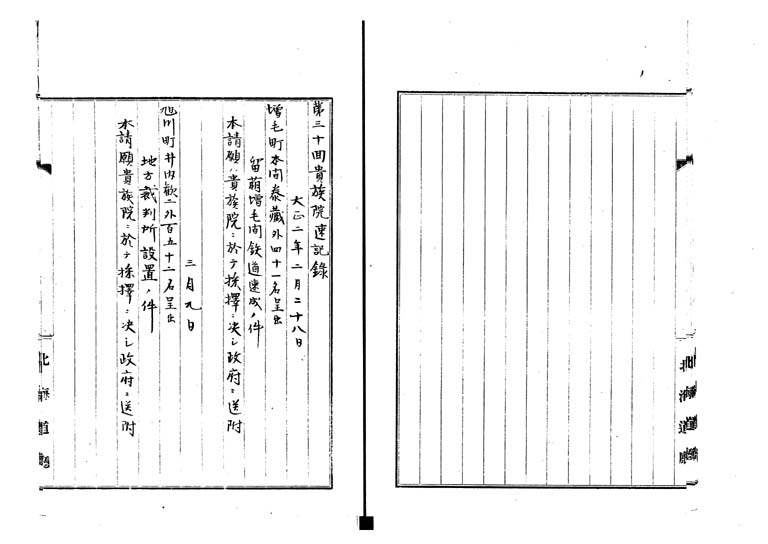 第三十回貴族院速記録
大正二年二月二十八日
増毛町本間泰藏外四十一名呈出
留萌増毛間鉄道速成ノ件
本請願ハ貴族院ニ於テ採擇ニ決シ政府ニ送附
三月九日
旭川町井内歓二外百五十二名呈出
地方裁判所設置ノ件
本請願貴族院ニ於テ採擇ニ決シ政府ニ送附
北海道廳
北海道廳